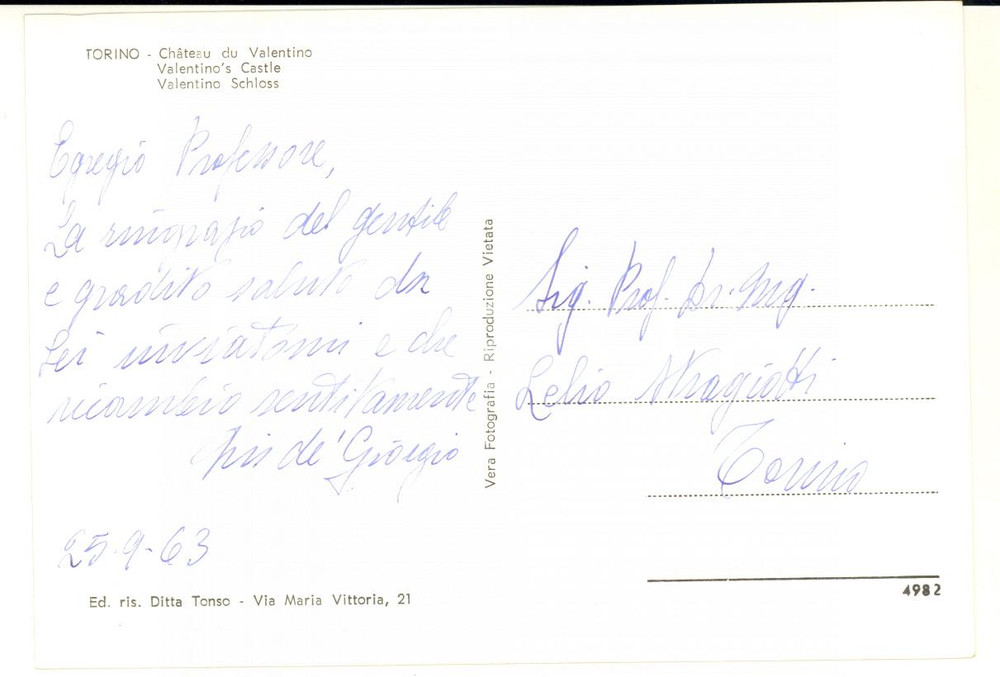 TORINO - Château du Valentino
Valentino's Castle
Valentino Schloss
Egregio Professore,
La ringrazio del gentile
e gradito saluto da
Lei inviatomi e che
ricambio sentitamente
de' Giorgio
25-9-63
Ed. ris. Ditta Tonso - Via Maria Vittoria, 21
Vera Fotografia - Riproduzione Vietata
Sig. Prof. Dr. Ing.
Lelio Stragiotti
Torino
4982